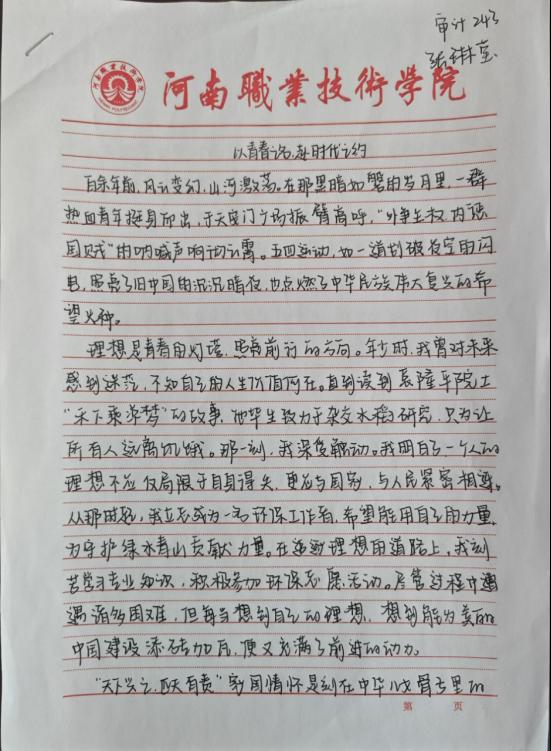 审计243
张琳莹
河南職業技術学院
以青春之名,赴时代之约
百余年前,风云变幻,山河激荡。在那黑暗如磐的岁月里,一群
热血青年挺身而出,于天安门广场振臂高呼,“外争主权,内惩
国贼”的呐喊声响彻云霄。五四运动,如一道划破夜空的闪
电,照亮了旧中国的沉沉暗夜,也点燃了中华民族伟大复兴的希
望火种。
理想是青春的灯塔,照亮前行的方向。年少时,我曾对未来
感到迷茫,不知自己的人生价值何在。直到读到袁隆平院士
“禾下乘凉梦”的故事,他毕生致力于杂交水稻研究,只为让
所有人远离饥饿。那一刻,我深受触动。我明白了一个人的
理想不应仅局限于自身得失,更应与国家,与人民紧密相连。
从那时起,我立志成为一名环保工作者,希望能用自己的力量,
为守护绿水青山贡献力量。在追逐理想的道路上,我刻
苦学习专业知识,积极参加环保志愿活动。尽管过程中遭
遇诸多困难,但每当想到自己的理想,想到能为美丽
中国建设添砖加瓦,便又充满了前进的动力。
“天下兴亡,匹夫有责”家国情怀是刻在中华儿女骨子里的
第 页